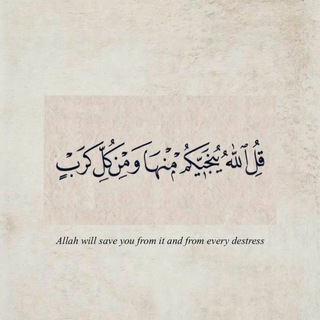 قُلِ ٱللَّهُ يُنَجِّيكُم مِّنْهَا وَمِن كُلِّ كَرْبٍ
Allah will save you from it and from every destress